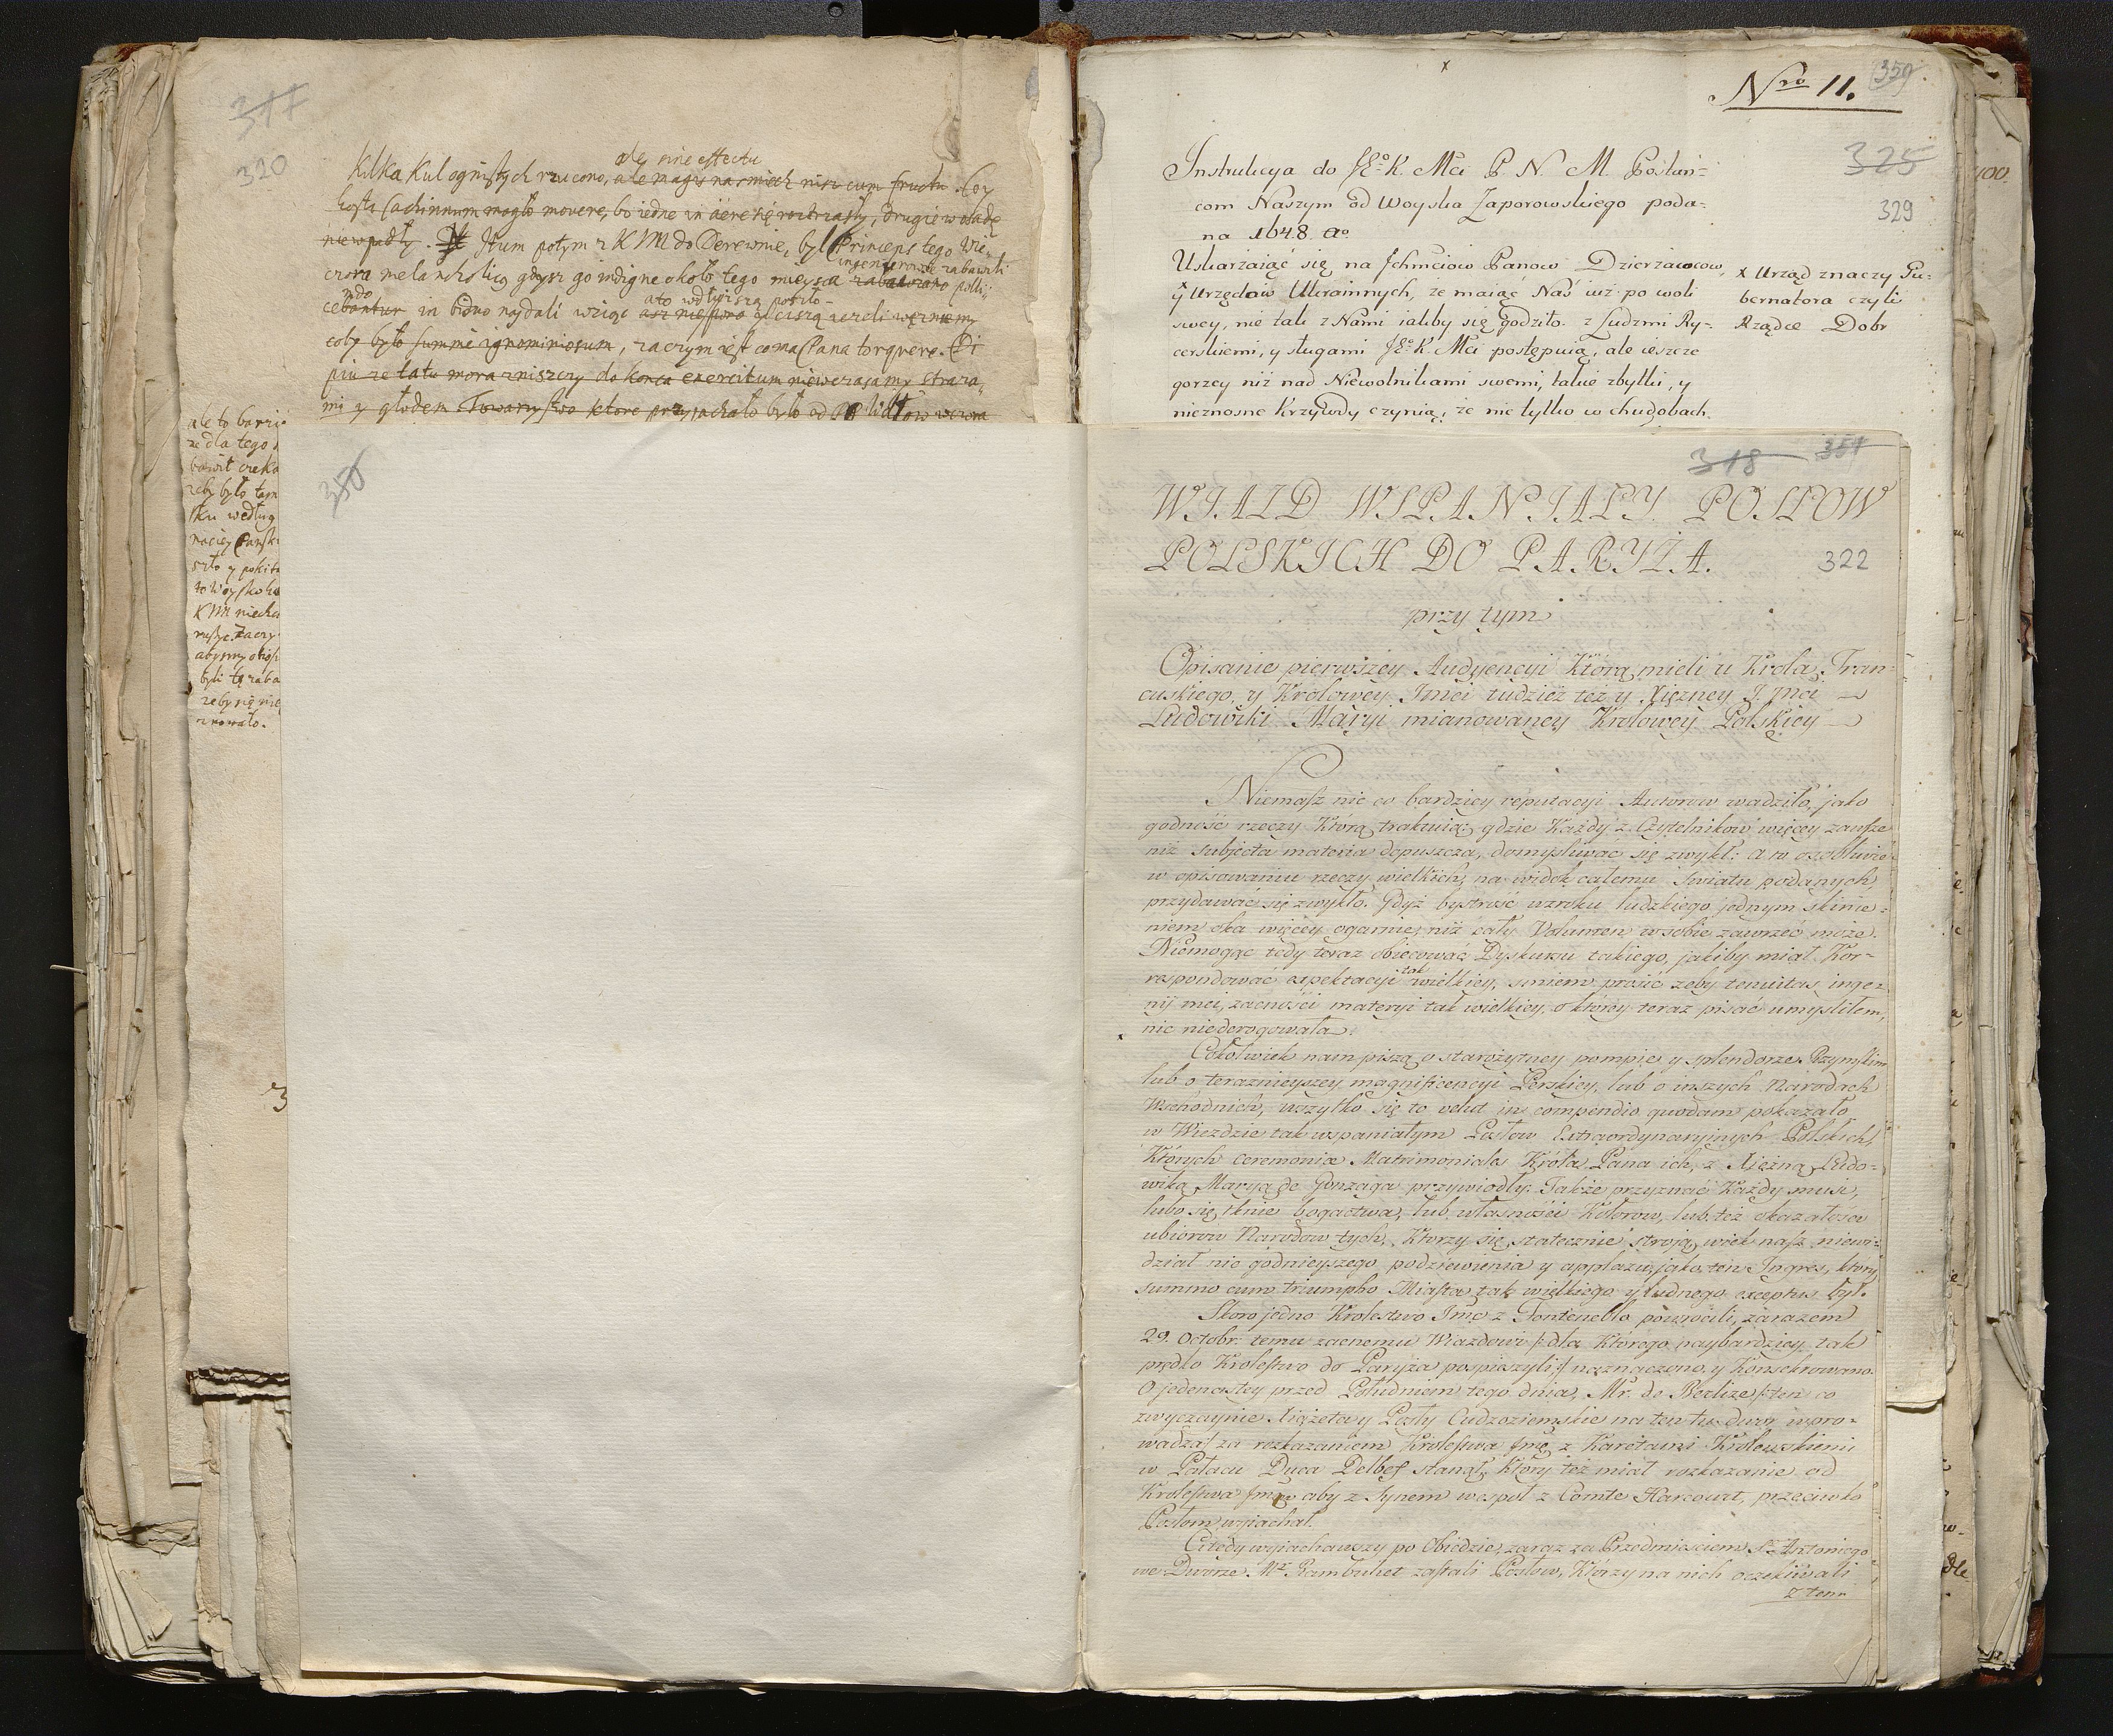 317
320
ale sine effectu
Kilka Kul ognistych rzucono, ale magis na smiech nisi cum fructu. Coy
hosta cachinnum mogło movere, bo iedne in aere się roztrzasły, drugie w wodę
niewpadły. Itum potym z KJM do Derewnie, był Princeps tego wie
ingenierowie zabawili
czora melancholicą gdysz go indigne około tego mieysca zabawiano polli
ndo
cebantur in bidno najdali wziąc
coby było summe ignominiosum, zaczym iest co ma Pana torquere. Di
piu ze lato mora zniszczy do konca exercitum niewczasamy strara
mi y głodem Towarzystwo ktore przyjachało było od
ale to barzi
ze dla tego
bawił czeka
zeby było tam
sku według
naciey Pansk
szło y pokita
KJM niecha
rusze. Zaczy
byli tę zaba
zeby się nie
350
3
Nro 11.
359
325
329
Instrukcya do JEo K. Mci P. N. M. Posłan=
com Naszym od Woyska Zaporowskiego poda=
na 1648. ao
Uskarzaiąc się na Jchmciow Panow Dzierzawcow,
x
y Urzędow Ukrainnych, ze maiąc Naś iuż po woli
swey, nie tak z Nami iakby się godziło z Ludzmi Ry=
cerskiemi, y sługami JEo K. Mci postępuią, ale ieszcze
gorzey niż nad Niewolnikami swemi, takie zbytki, y
nieznosne Krzywdy czynią, że nie tylko w chudobach
x Urząd znaczy Gu=
bernatora czyli
Rządcę Dobr
318 351
WJAZD WSPANIAŁY POSŁOW
POLSKICH DO PARYŻA.
322
przy tym
Opisanie pierwszey Audyencyi Którą mieli u Krola Fran=
cuskiego, y Królowey Jmci tudzież też y Xiężney J. Jmci
Ludowiki Maryi mianowaney Krolowey Polskiey
Niemasz nic co bardziey reputacyi Autorow wadziło, jako
godność rzeczy Którą traktuią: gdzie Każdy z Czytelnikow więcey zawsze
niż subjecta materia dopuszcza, domysliwać się zwykł: a to osobliwie
w opisowaniu rzeczy wielkich, na widok całemu światu podanych
przydawać się zwykło. Gdyż bystrość wzroku ludzkiego jednym skinie=
niem oka więcey ogarnie, niż cały Volumen w sobie zawrzeć może.
Niemogąc tedy teraz obiecować Dyskursu takiego, jakiby miał Kor=
tak
respondować expektacyi wielkiey, smiem prosić żeby tenuitas inge=
nij mei, zacności materyi tak wielkiey, o którey teraz pisać umysliłem,
nic niederogowała.
Cokolwiek nam piszą o starożytney pompie y splendorze Rzymskim
lub o teraznieyszey magnificencyi Perskiey, lub o inszych Narodach
Wschodnich, wszytko się to velut in compendio quodam pokazało
w Wiezdzie tak wspaniałym Posłow Extraordynaryjnych Polskich,
Ktorych ceremonia Matrimoniala Króla Pana ich, z Xiężną Ludo=
wiką Maryą de Gonzaga przywiodły. Także przyznać Każdy musi,
lubo się tknie bogactwa, lub własności Kolorow, lub też okazałości
ubiorow Narodow tych, Ktorzy się statecznie stroją, wiek nasz niewi=
dział nic godnieyszego podziewienia y applazu, jako ten Ingres, ktory
summo cum triumpho Miasta tak wielkiego y ludnego exceptus był.
Skoro jedno Krolestwo Jmc z Fontenebló powrócili, zarazem
29. Octobr: temu zacnemu Wiazdowi /: dla Którego naybardziey tak
prędko Krolestwo do Paryża pospieszyli :/ naznaczono y Konsekrowano.
O jedenastey przed Południem tego dnia, Mr. de Berlize /: ten co
zwyczaynie Xiążęta y Posły Cudzoziemskie na ten tu dwor wpro=
wadza :/ za rozkazaniem Krolestwa Jmę z Karetami Krolewskiemi
w Pałacu Duca Delbef stanął, Który też miał rozkazanie od
Krolestwa Jmę aby z Synem wespoł z Comte Harcourt, przeciwko
Posłom wyiachał.
Ci tedy wyiachawszy po Obiedzie, zaraz za Przedmieściem St. Antoniego
we Dworze Mr Rambuliet zastali Posłow, Którzy na nich oczekiwali
z tem